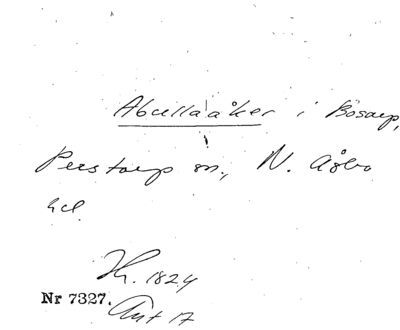 Abullaåker i Bosarp,
Perstorp sn., N. Åsbo
hd.
Kr. 1824
Nr 7327. Ant 17